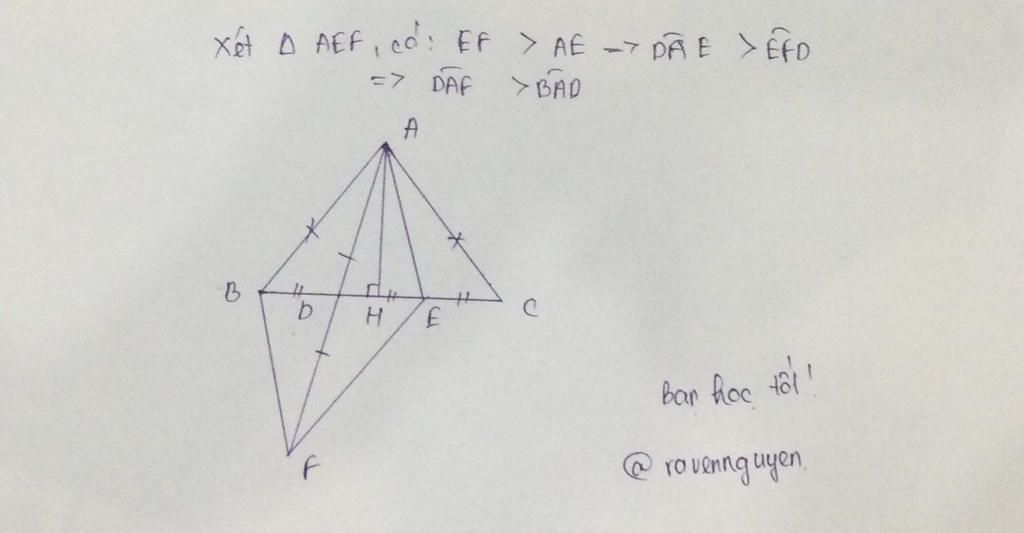 Xét Δ AEF, có: EF > AE -> D͡AE > E͡FD
=> D͡AF > B͡AD
A
B
D
H
E
C
F
Bạn học tốt!
@ rovennguyen.